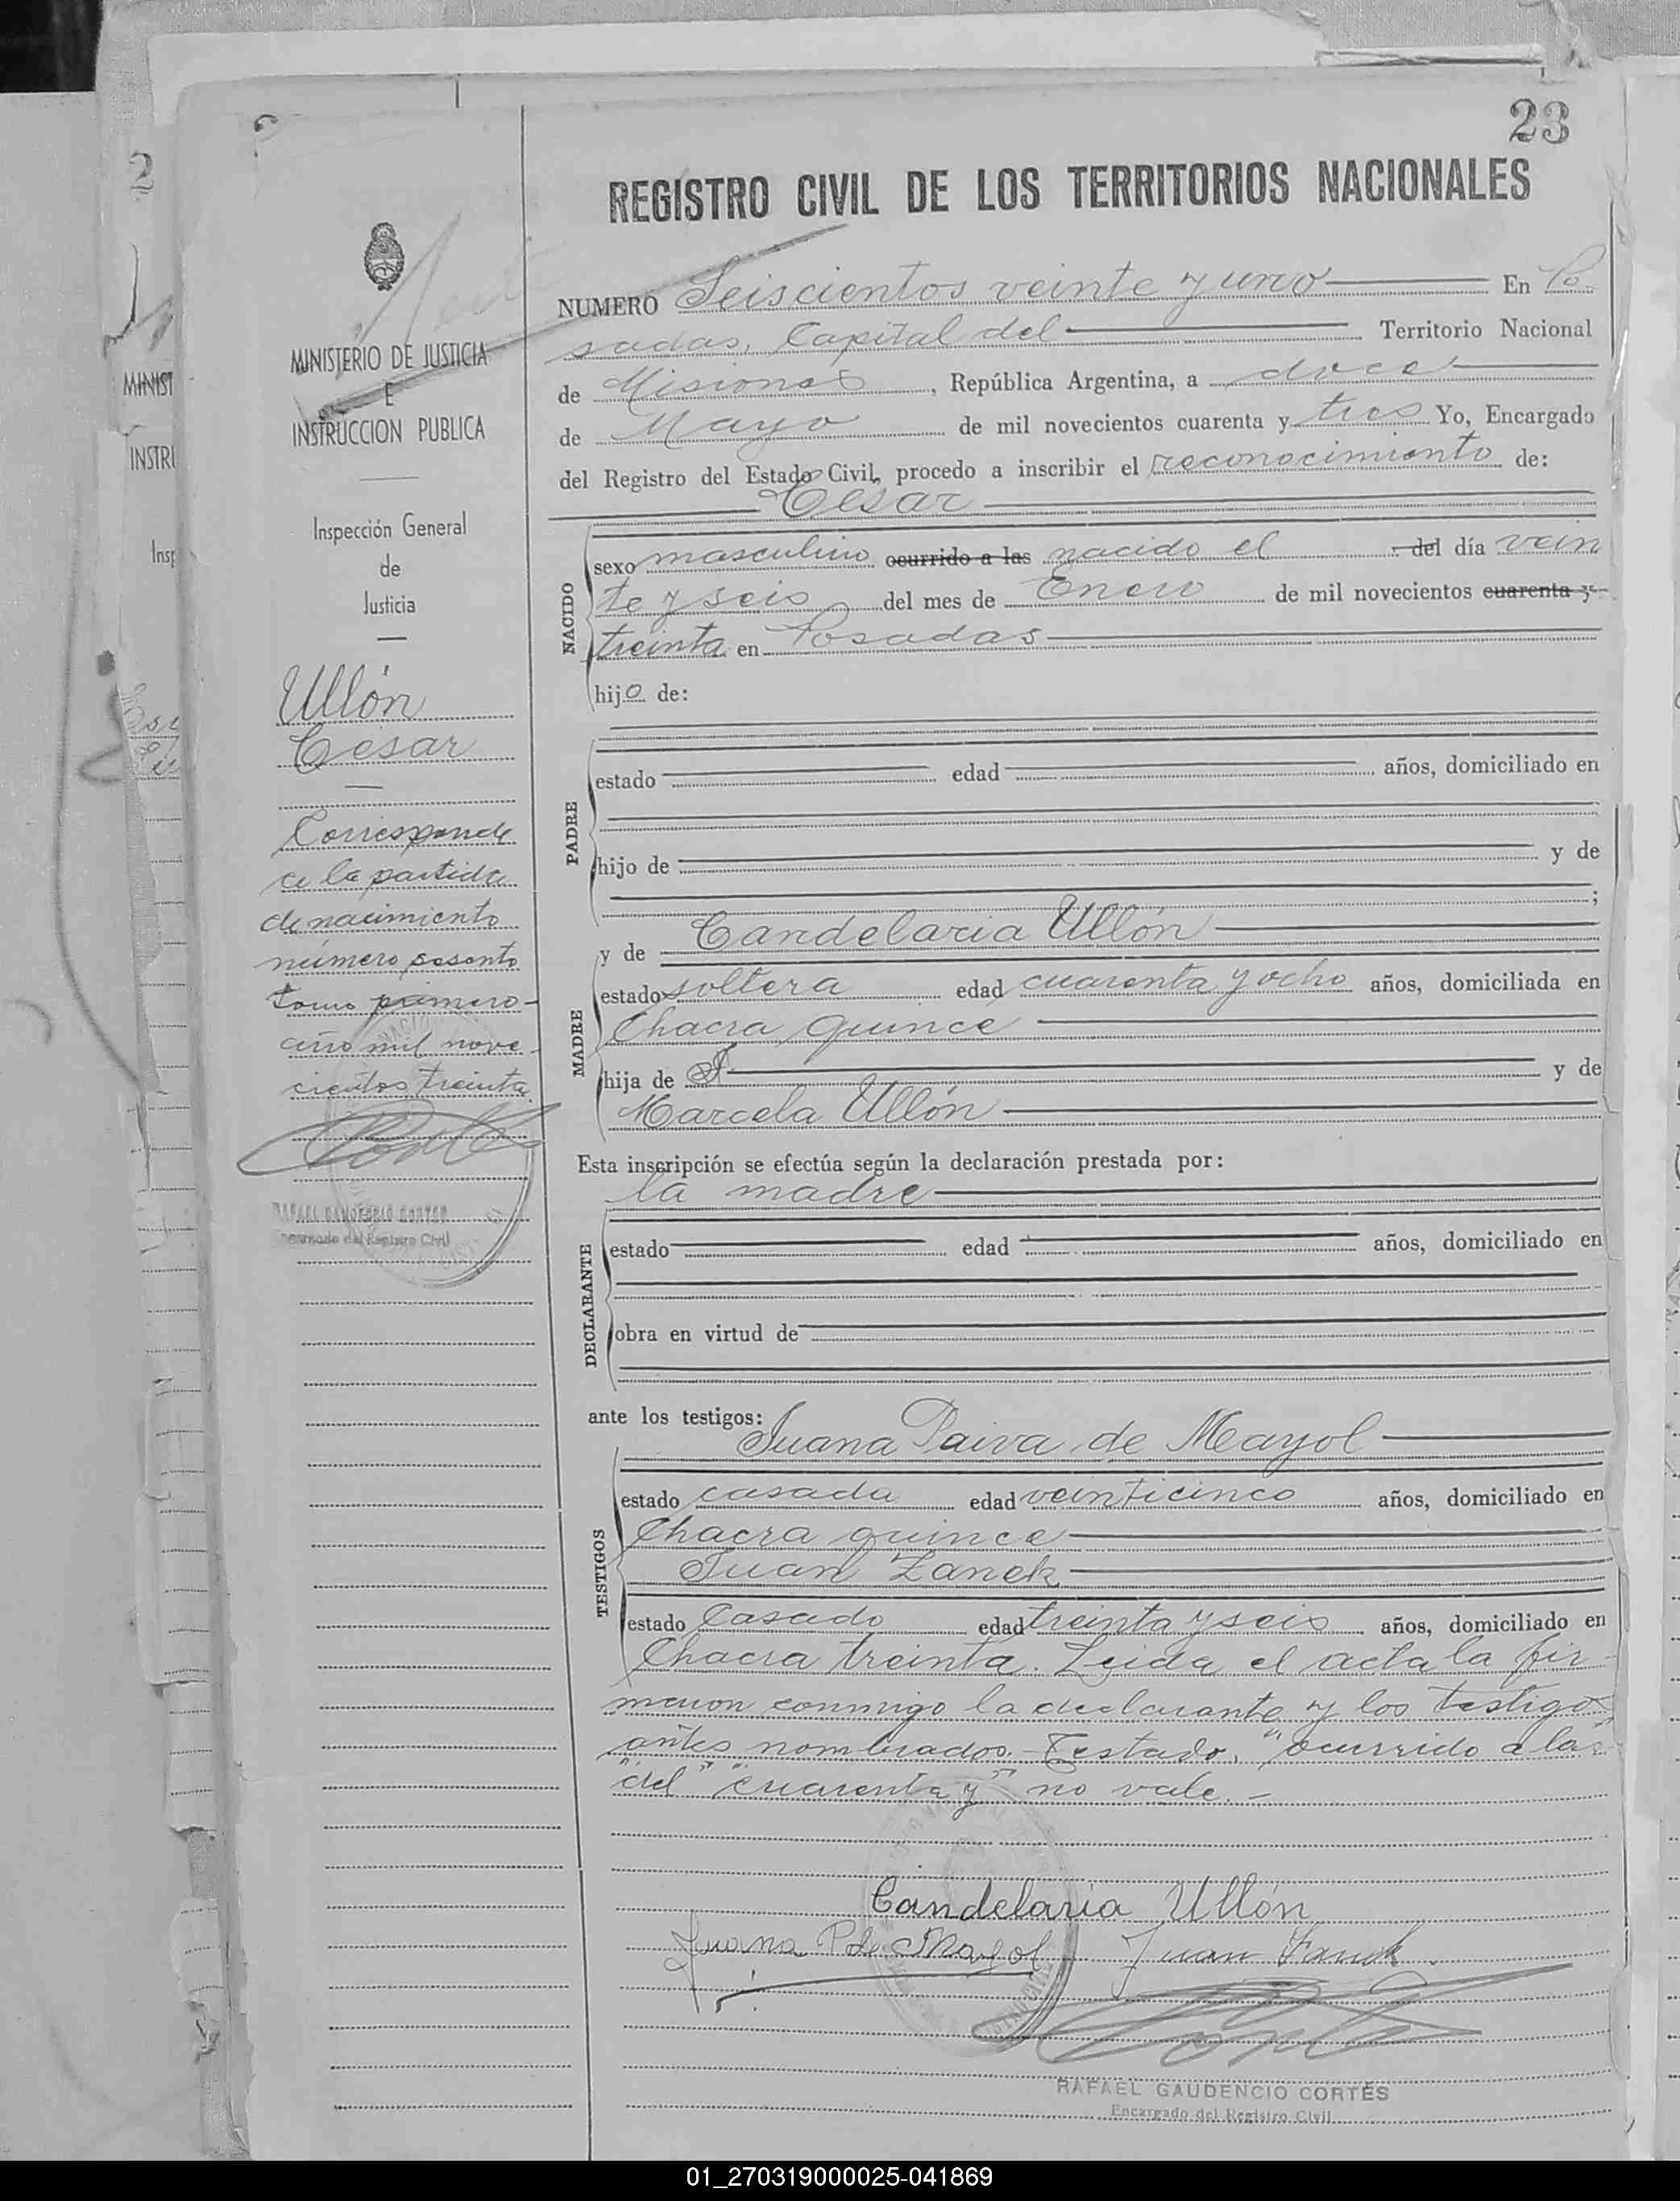 23
REGISTRO CIVIL DE LOS TERRITORIOS NACIONALES
NUMERO Seiscientos veinte y uno En Po-
sadas, Capital del Territorio Nacional
de Misiones, República Argentina, a doce
de Mayo de mil novecientos cuarenta y tres Yo, Encargado
del Registro del Estado Civil, procedo a inscribir el reconocimiento de:
César
NACIDO
sexo masculino ocurrido a las nacido el del día vein
te y seis del mes de Enero de mil novecientos cuarenta y
treinta en Posadas
hijo de:
PADRE
estado edad años, domiciliado en
hijo de y de
;
MADRE
y de Candelaria Ullón
estado soltera edad cuarenta y ocho años, domiciliada en
Chacra quince
hija de y de
Marcela Ullón
Esta inscripción se efectúa según la declaración prestada por:
la madre
DECLARANTE
estado edad años, domiciliado en
obra en virtud de
ante los testigos:
Juana Paiva de Mayol
TESTIGOS
estado casada edad veinticinco años, domiciliado en
Chacra quince
Juan Zanek
estado Casado edad treinta y seis años, domiciliado en
Chacra treinta. Leida el acta la fir-
maron conmigo la declarante y los testigos
antes nombrados.- Testado: "ocurrido a las"
"del" "cuarenta y" no vale.-
Candelaria Ullón
Juana P. de Mayol Juan Zanek
RAFAEL GAUDENCIO CORTÉS
Encargado del Registro Civil
MINISTERIO DE JUSTICIA
E
INSTRUCCION PUBLICA
Inspección General
de
Justicia
Ullón
César
Corresponde
a la partida
de nacimiento
número sesenta
tomo primero
año mil nove-
cientos treinta.
RAFAEL GAUDENCIO CORTES
Encargado del Registro Civil
2
MINIST
INSTRU
Insp
01_270319000025-041869